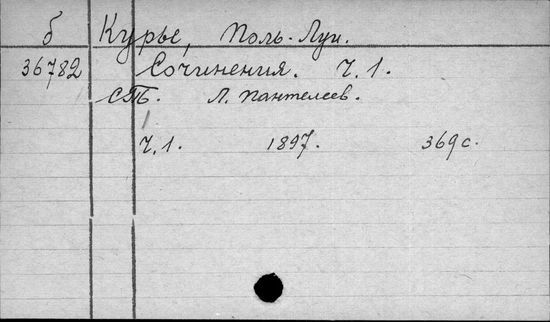 б Курье, Поль-Луи.
36782 Сочинения. Ч.1.
СПБ. Л. Пантелеев.
Ч.1. 1897. 369 с.